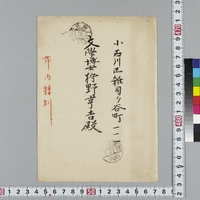 小石川区雑司ヶ谷町一一一
文學博士狩野亨吉殿
市内特別